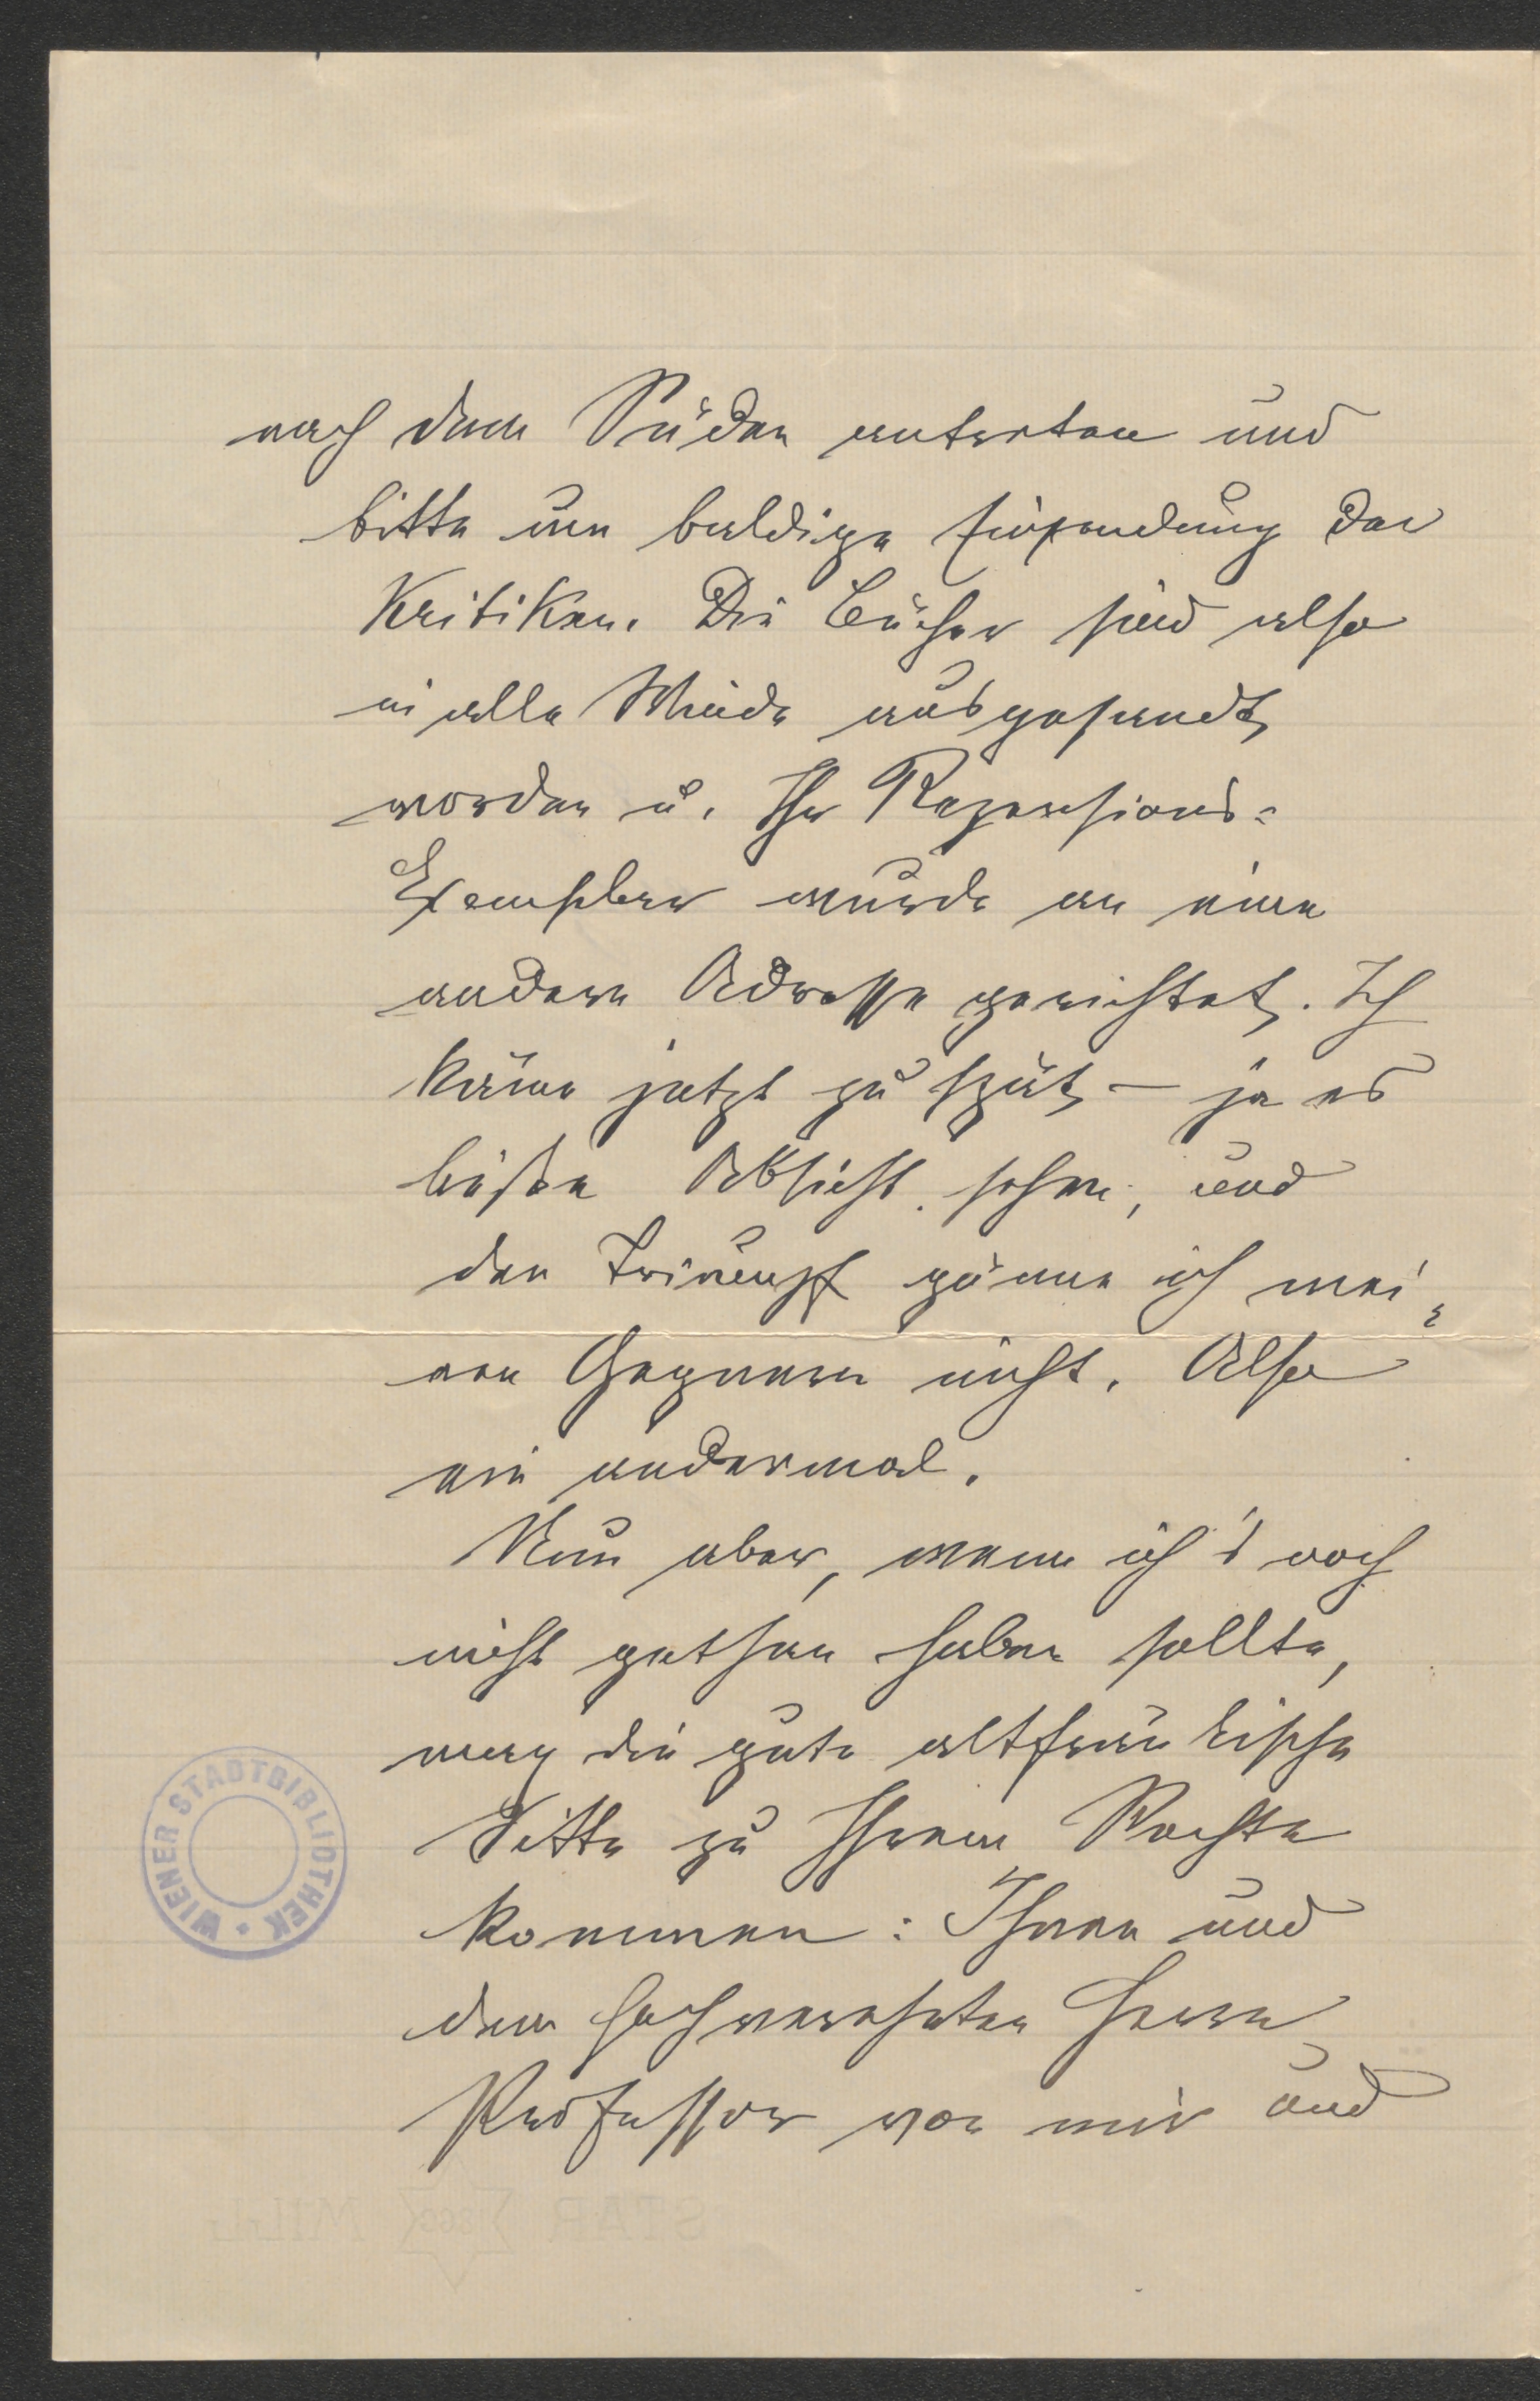 nach dem Süden antreten und
bitte um baldige Einsendung der
Kritiken. Die Bücher sind also
in alle Winde ausgesandt
worden u. Ihr Rezensions-
Exemplar wurde an eine
andere Adresse gerichtet. Ich
käme jetzt zu spät – ja es
ließe Absicht sehen, und
den Triumpf gönne ich mei-
nen Gegnern nicht. Also
ein andermal.
Nun aber, wenn ich's noch
nicht gethan haben sollte,
mag die gute altfränkische
Sitte zu Ihrem Rechte
kommen: Ihnen und
dem hochverehrten Herrn
Professor von mir und
WIENER STADTBIBLIOTHEK
STAR MILL